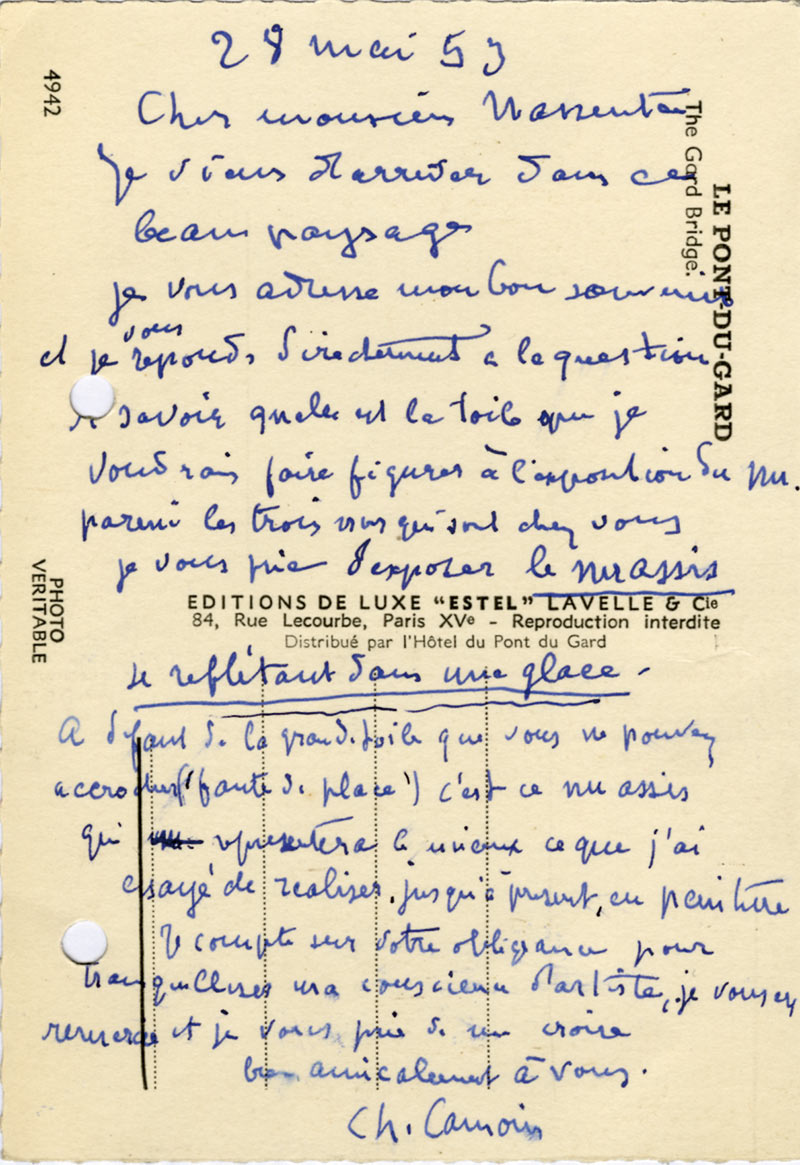 28 mai 53
Cher monsieur Massenta
Je viens d'arriver dans ce
beau paysage
je vous adresse mon bon souvenir
vous
et je reponds directement a la question
de savoir quelle est la toile que je
voudrais faire figurer à l'exposition du nu.
parmi les trois nus qui sont chez vous
je vous prie d'exposer le nu assis
se reflétant dans une glace -
A défaut de la grande toile que vous ne pouvez
accrocher ('faute de place') c'est ce nu assis
qui representera le mieux ce que j'ai
essayé de realiser, jusqu'à présent, en peinture
Je compte sur votre obligeance pour
tranquilliser ma conscience d'artiste, je vous en
remercie et je vous prie de me croire
bien amicalement à vous.
Ch. Camoin
4942
LE PONT-DU-GARD
The Gard Bridge.
PHOTO
VERITABLE
EDITIONS DE LUXE "ESTEL" LAVELLE & Cie
84, Rue Lecourbe, Paris XVe - Reproduction interdite
Distribué par l'Hôtel du Pont du Gard